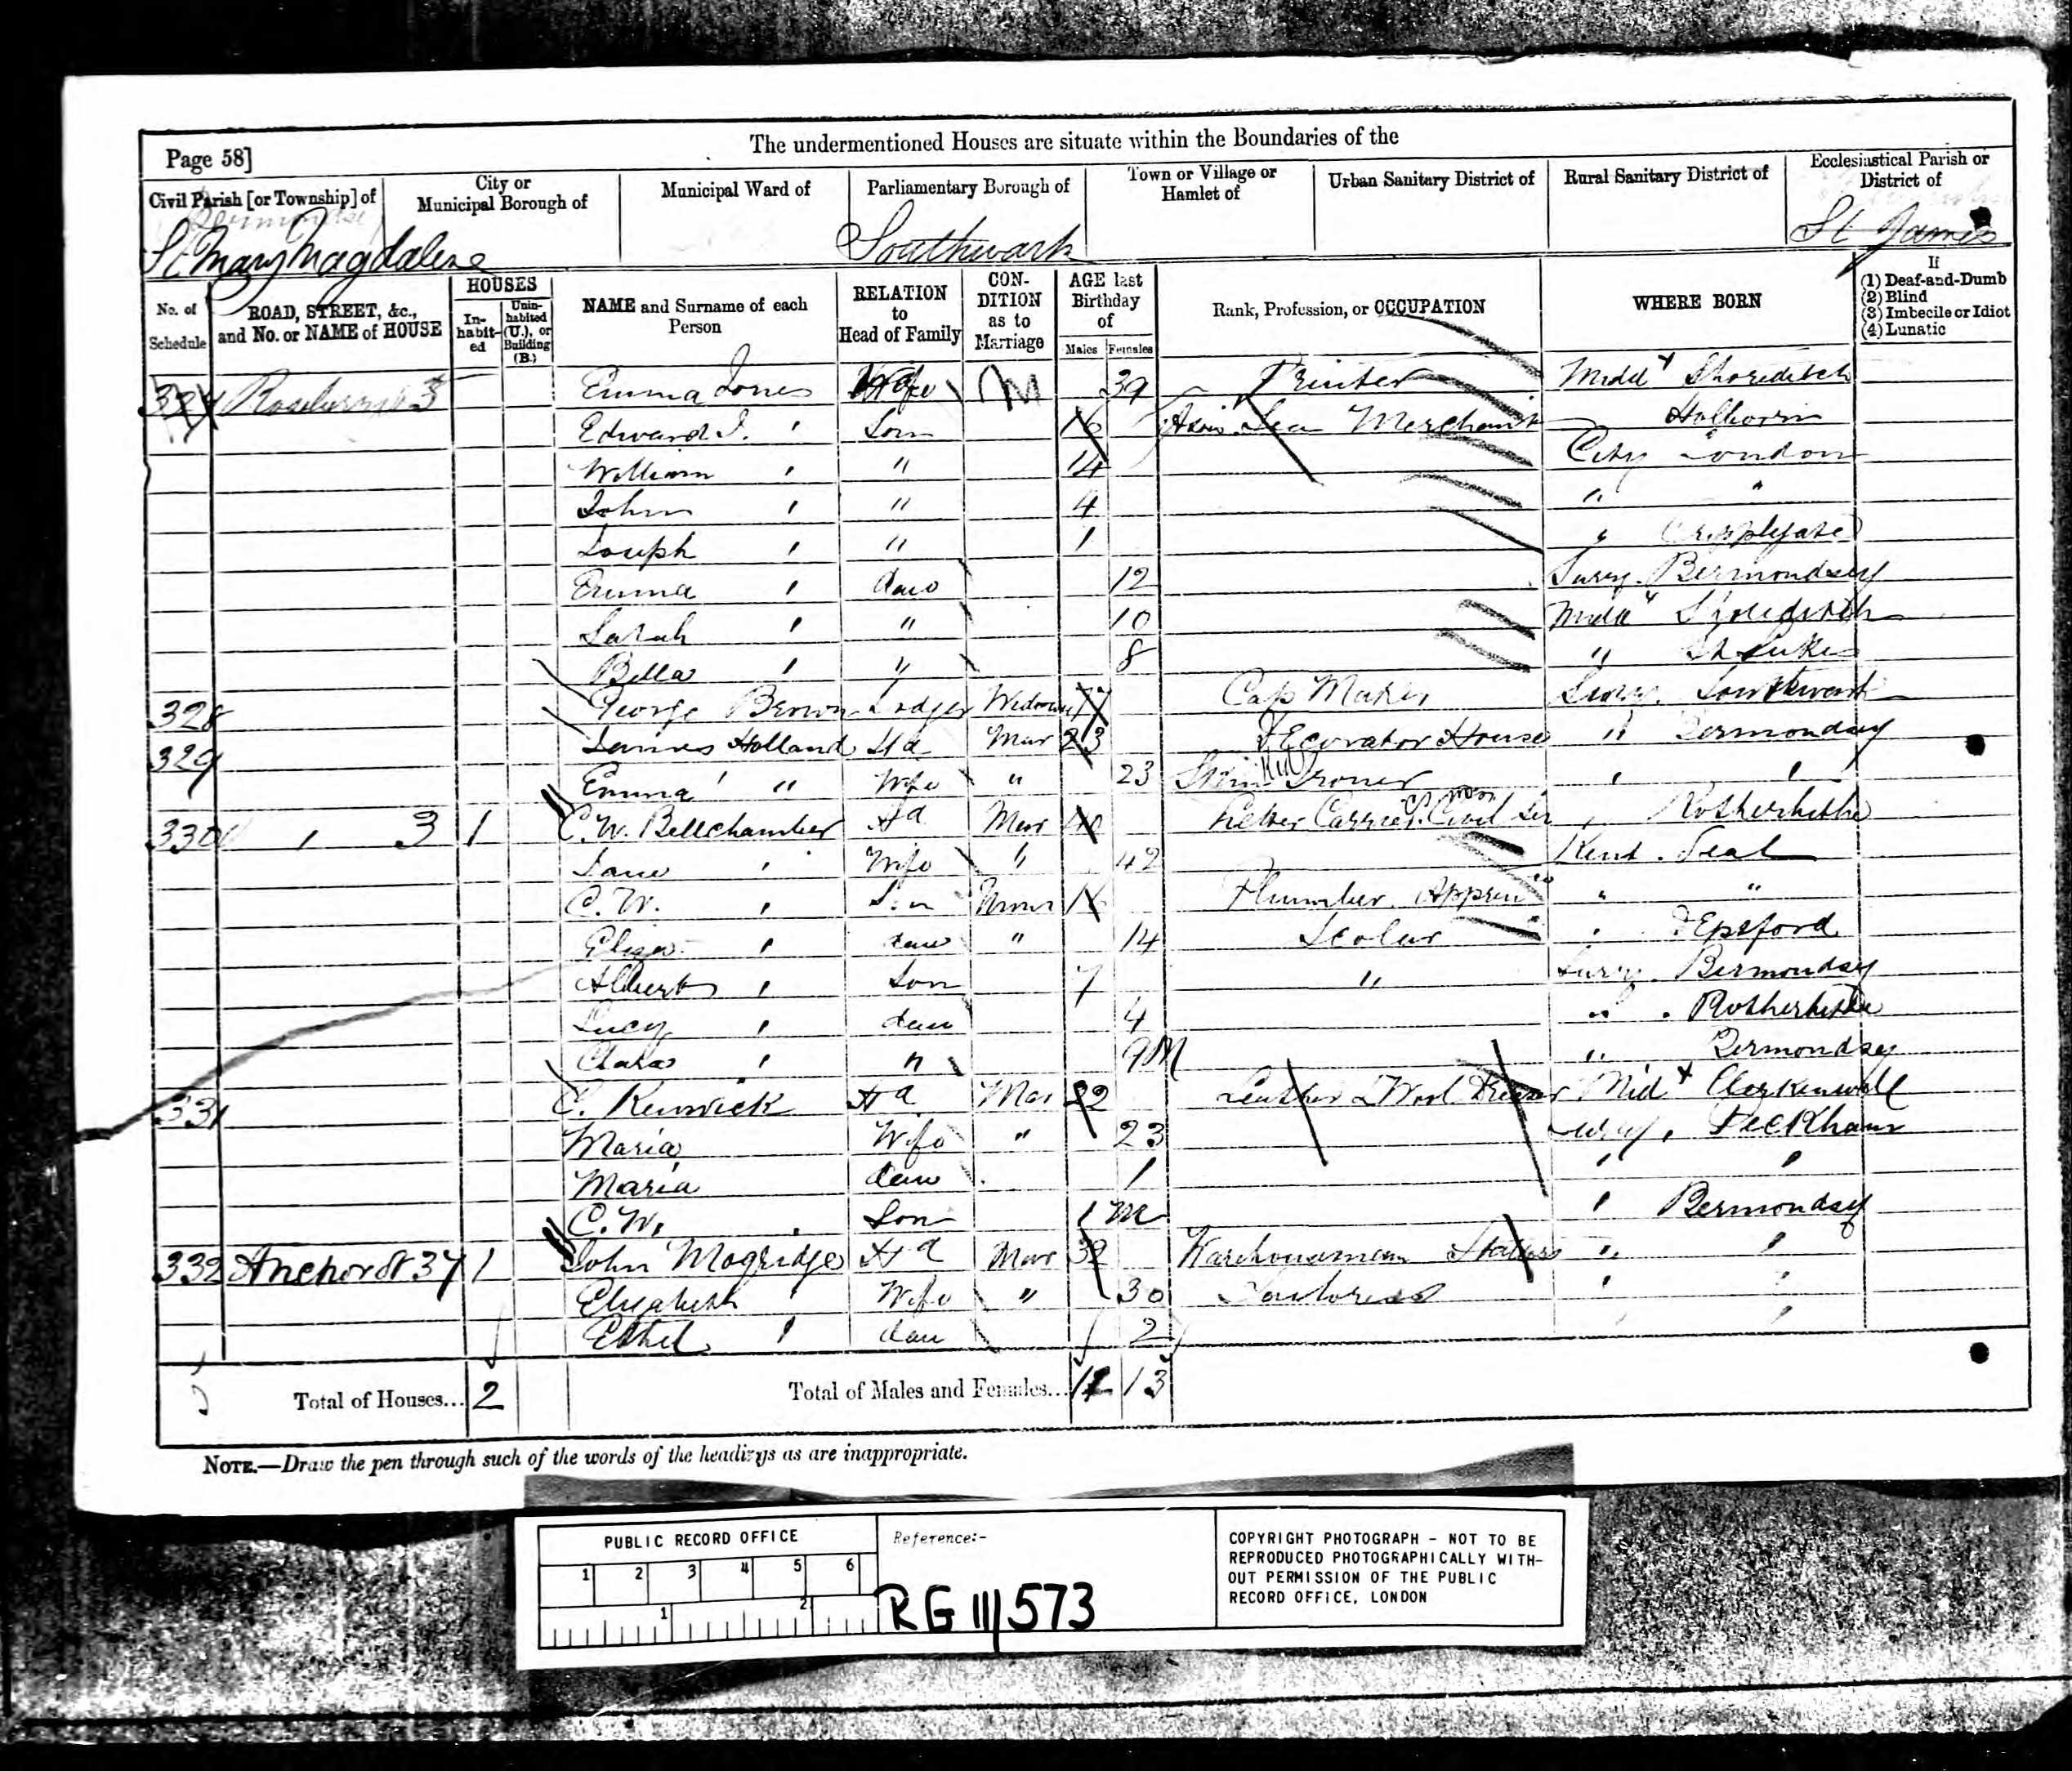 The undermentioned Houses are situate within the Boundaries of the
Page 58]
Civil Parish [or Township] of
City or Municipal Borough of
Municipal Ward of
Parliamentary Borough of
Town or Village or Hamlet of
Urban Sanitary District of
Rural Sanitary District of
Ecclesiastical Parish or District of
St Mary Magdalene
Southwark
St James
No. of Schedule
ROAD, STREET, &c., and No. or NAME of HOUSE
HOUSES
In-habit-ed
Unin-habited (U.), or Building (B.)
NAME and Surname of each Person
RELATION to Head of Family
CON-DITION as to Marriage
AGE last Birthday of
Males Females
Rank, Profession, or OCCUPATION
WHERE BORN
If
(1) Deaf-and-Dumb
(2) Blind
(3) Imbecile or Idiot
(4) Lunatic
3 Emma Jones Wife M 39 Printer Middx Shoreditch
Edward J. ' Son 16 Merchant Holborn
William ' " 14 City London
John ' " 4 " "
Joseph ' " 1 " Cripplegate
Emma ' dau 12 Surry. Bermondsey
Sarah ' " 10
Bella ' " 8 " St Lukes
328 George Brown Lodger Widower 77 Cap Maker Southwark
329 James Holland Hd Mar 23 DEcorator House " Bermondsey
Emma " Wife " 23 Ironer ' '
330 ' 3 1 C. W. Bellchamber Hd Mar 40 Letter Carrier Civil Ser , Rotherhithe
Jane ' Wife " 42 Kent . Deal
C. W. ' Son 16 Plumber. " "
Eliza ' dau " 14 Scolar . DEptford
Albert ' Son 7 " Surry. Bermondsey
Lucy ' dau 4 " . Rotherhithe
Clara ' " 9M " Bermondsey
331 C. Renwick Hd Mar 22 Leather & Wool Mid x Clerkenwell
Maria Wife " 23 Peckham
Maria dau 1 ' '
C. W. Son 1 M ' Bermondsey
332 Anchor St 37 1 John Mogridge Hd Mar 32 Warehouseman " '
Elizabeth Wife " 30 Tailoress ' '
Ethel ' dau 2 ' '
Total of Houses... 2
Total of Males and Females... 12 13
NOTE.—Draw the pen through such of the words of the headings as are inappropriate.
PUBLIC RECORD OFFICE
1 2 3 4 5 6
1 2
Reference:-
RG 11/573
COPYRIGHT PHOTOGRAPH - NOT TO BE
REPRODUCED PHOTOGRAPHICALLY WITH-
OUT PERMISSION OF THE PUBLIC
RECORD OFFICE, LONDON